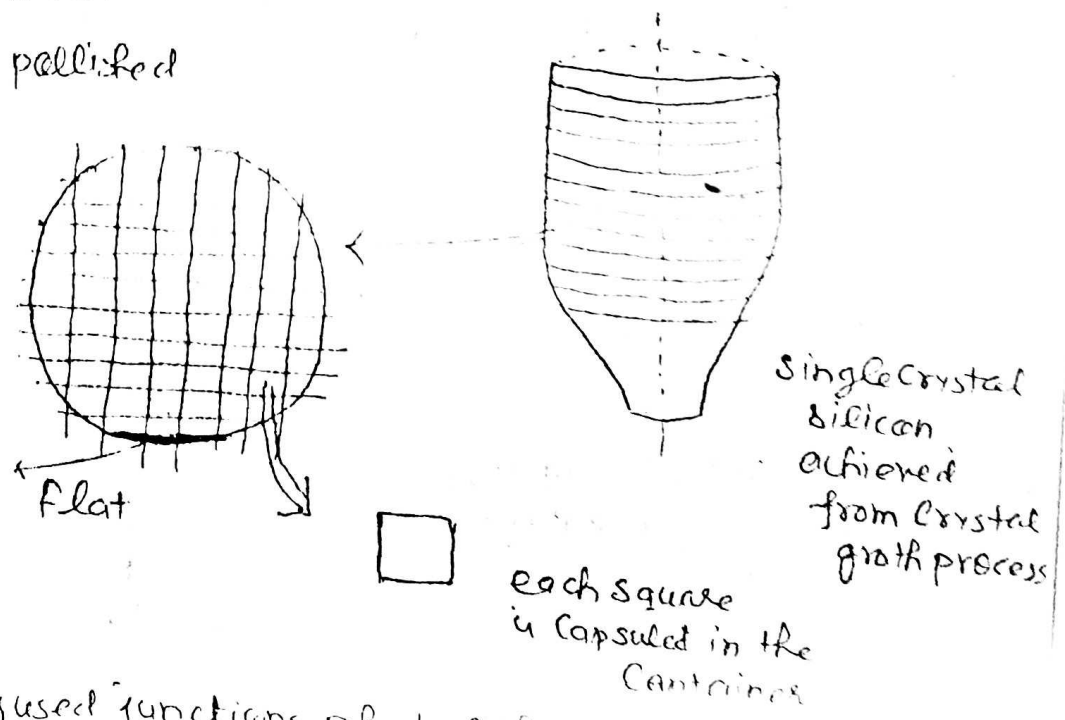 pollished
single Crystal
silicon
achieved
from Crystal
groth process
Flat
each square
is Capsuled in the
Container
used junctions